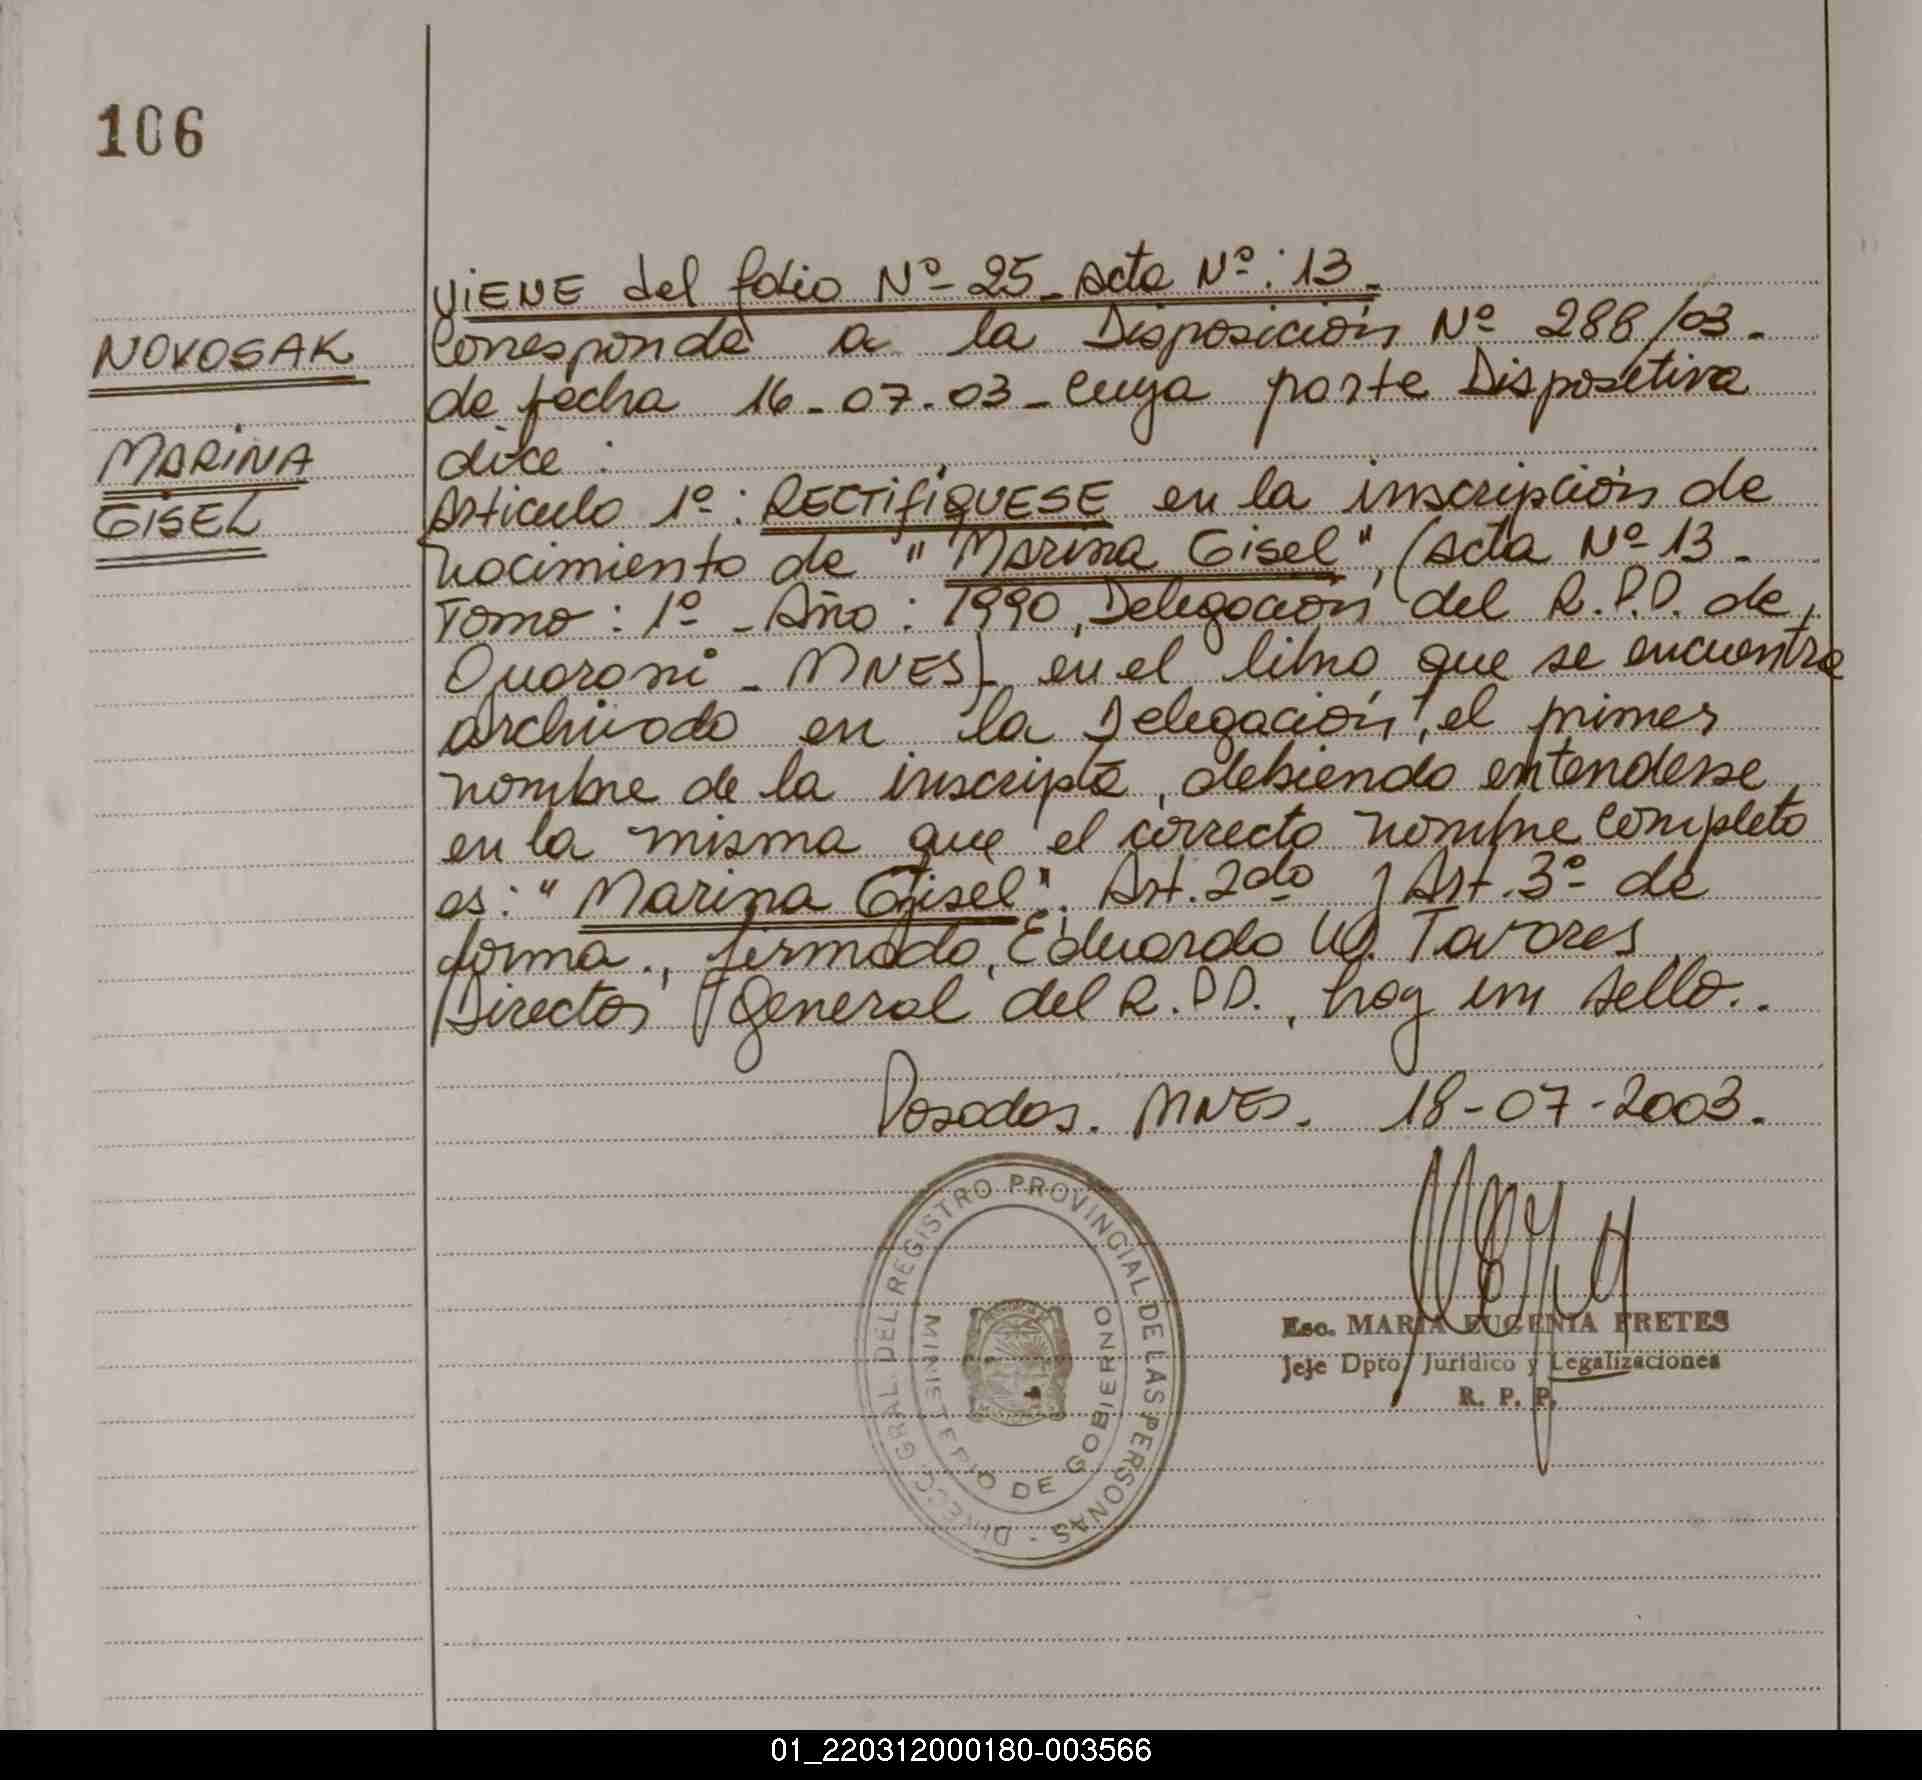 106
VIENE del folio Nº 25 - Acta Nº: 13 -
NOVOSAK
MARINA
GISEL
Corresponde a la Disposición Nº 288/03 -
de fecha 16-07-03 - cuya parte Dispositiva
dice:
Artículo 1º: RECTIFIQUESE en la inscripción de
nacimiento de "Marina Gisel", (Acta Nº 13 -
Tomo: 1º - Año: 1990, Delegación del R.P.P. de
- MNES) - en el libro que se encuentra
archivado en la Delegación, el primer
nombre de la inscripta, debiendo entenderse
en la misma que el correcto nombre completo
es: "Marina Gisel". Art. 2do y Art. 3º de
forma., firmado, Eduardo W. Tavares
Director General del R.P.P., hay un sello..
Posadas. MNES. 18-07-2003.
DIRECC. GRAL. DEL REGISTRO PROVINCIAL DE LAS PERSONAS -
MINISTERIO DE GOBIERNO
Esc. MARIA EUGENIA FRETES
Jefe Dpto. Jurídico y Legalizaciones
R. P. P.
01_220312000180-003566